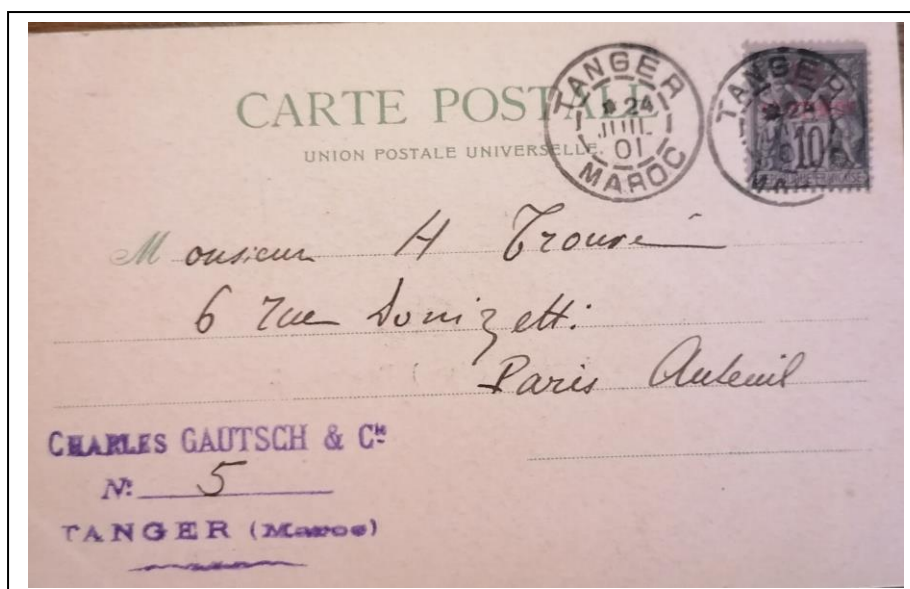 CARTE POSTALE
UNION POSTALE UNIVERSELLE.
TANGER
24
JUIL
01
MAROC
TANGER
24
10
Monsieur H Trouvé
6 rue Donizetti
Paris Auteuil
CHARLES GAUTSCH & Cie
No: 5
TANGER (Maroc)